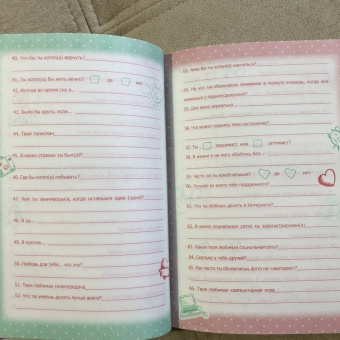 40. Что бы ты хотел(а) вернуть?
41. Ты хотел(а) бы жить вечно? да нет
42. Иногда во время сна я...
43. Было бы круто, если...
44. Твой талисман
45. В каких странах ты был(а)?
46. Где бы ты хотел(а) побывать?
47. Чем ты занимаешься, когда остаёшься один (одна)?
48. Я за...
49. Я против...
50. Любовь для тебя... что это?
51. Твоя любимая телепередача
52. Что ты умеешь делать лучше всего?
53. Чему бы ты хотел(а) научиться?
54. На что ты обращаешь внимание в первую очередь, когда
55. Для меня нормально...
56. Что может поднять твоё настроение?
57. Ты пессимист или оптимист?
58. В жизни я не могу обойтись без...
59. Часто ли ты влюбляешься? да нет
60. Лучшее из всего тебе подаренного?
61. Что ты любишь делать в Интернете?
62. В каких социальных сетях ты зарегистрирован(а)?
63. Какая твоя любимая социальная сеть?
64. Сколько у тебя друзей?
65. Как часто ты обновляешь фото на «аватарке»?
66. Твоя любимая компьютерная игра